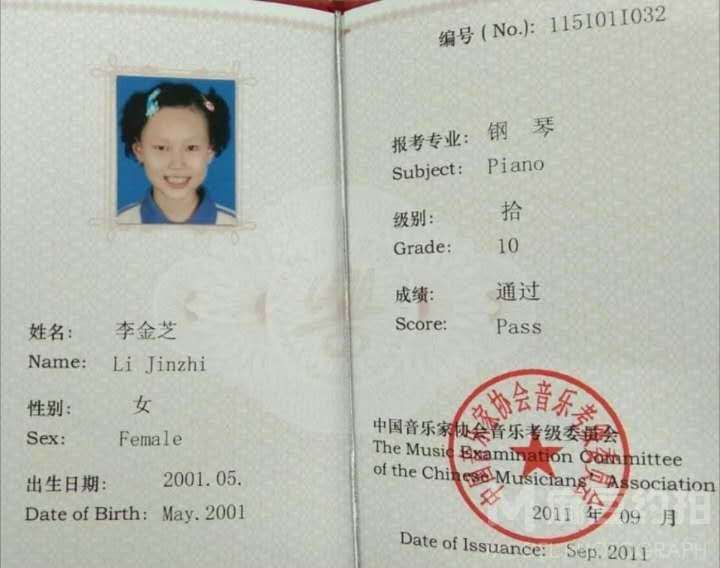 编号 ( No.): 115101I032
报考专业: 钢 琴
Subject: Piano
级别: 拾
Grade: 10
成绩: 通过
Score: Pass
姓名: 李金芝
Name: Li Jinzhi
性别: 女
Sex: Female
出生日期: 2001.05.
Date of Birth: May.2001
中国音乐家协会音乐考级委员会
The Music Examination Committee
of the Chinese Musicians' Association
中国音乐家协会音乐考级委员会
2011 年 09 月
Date of Issuance: Sep.2011